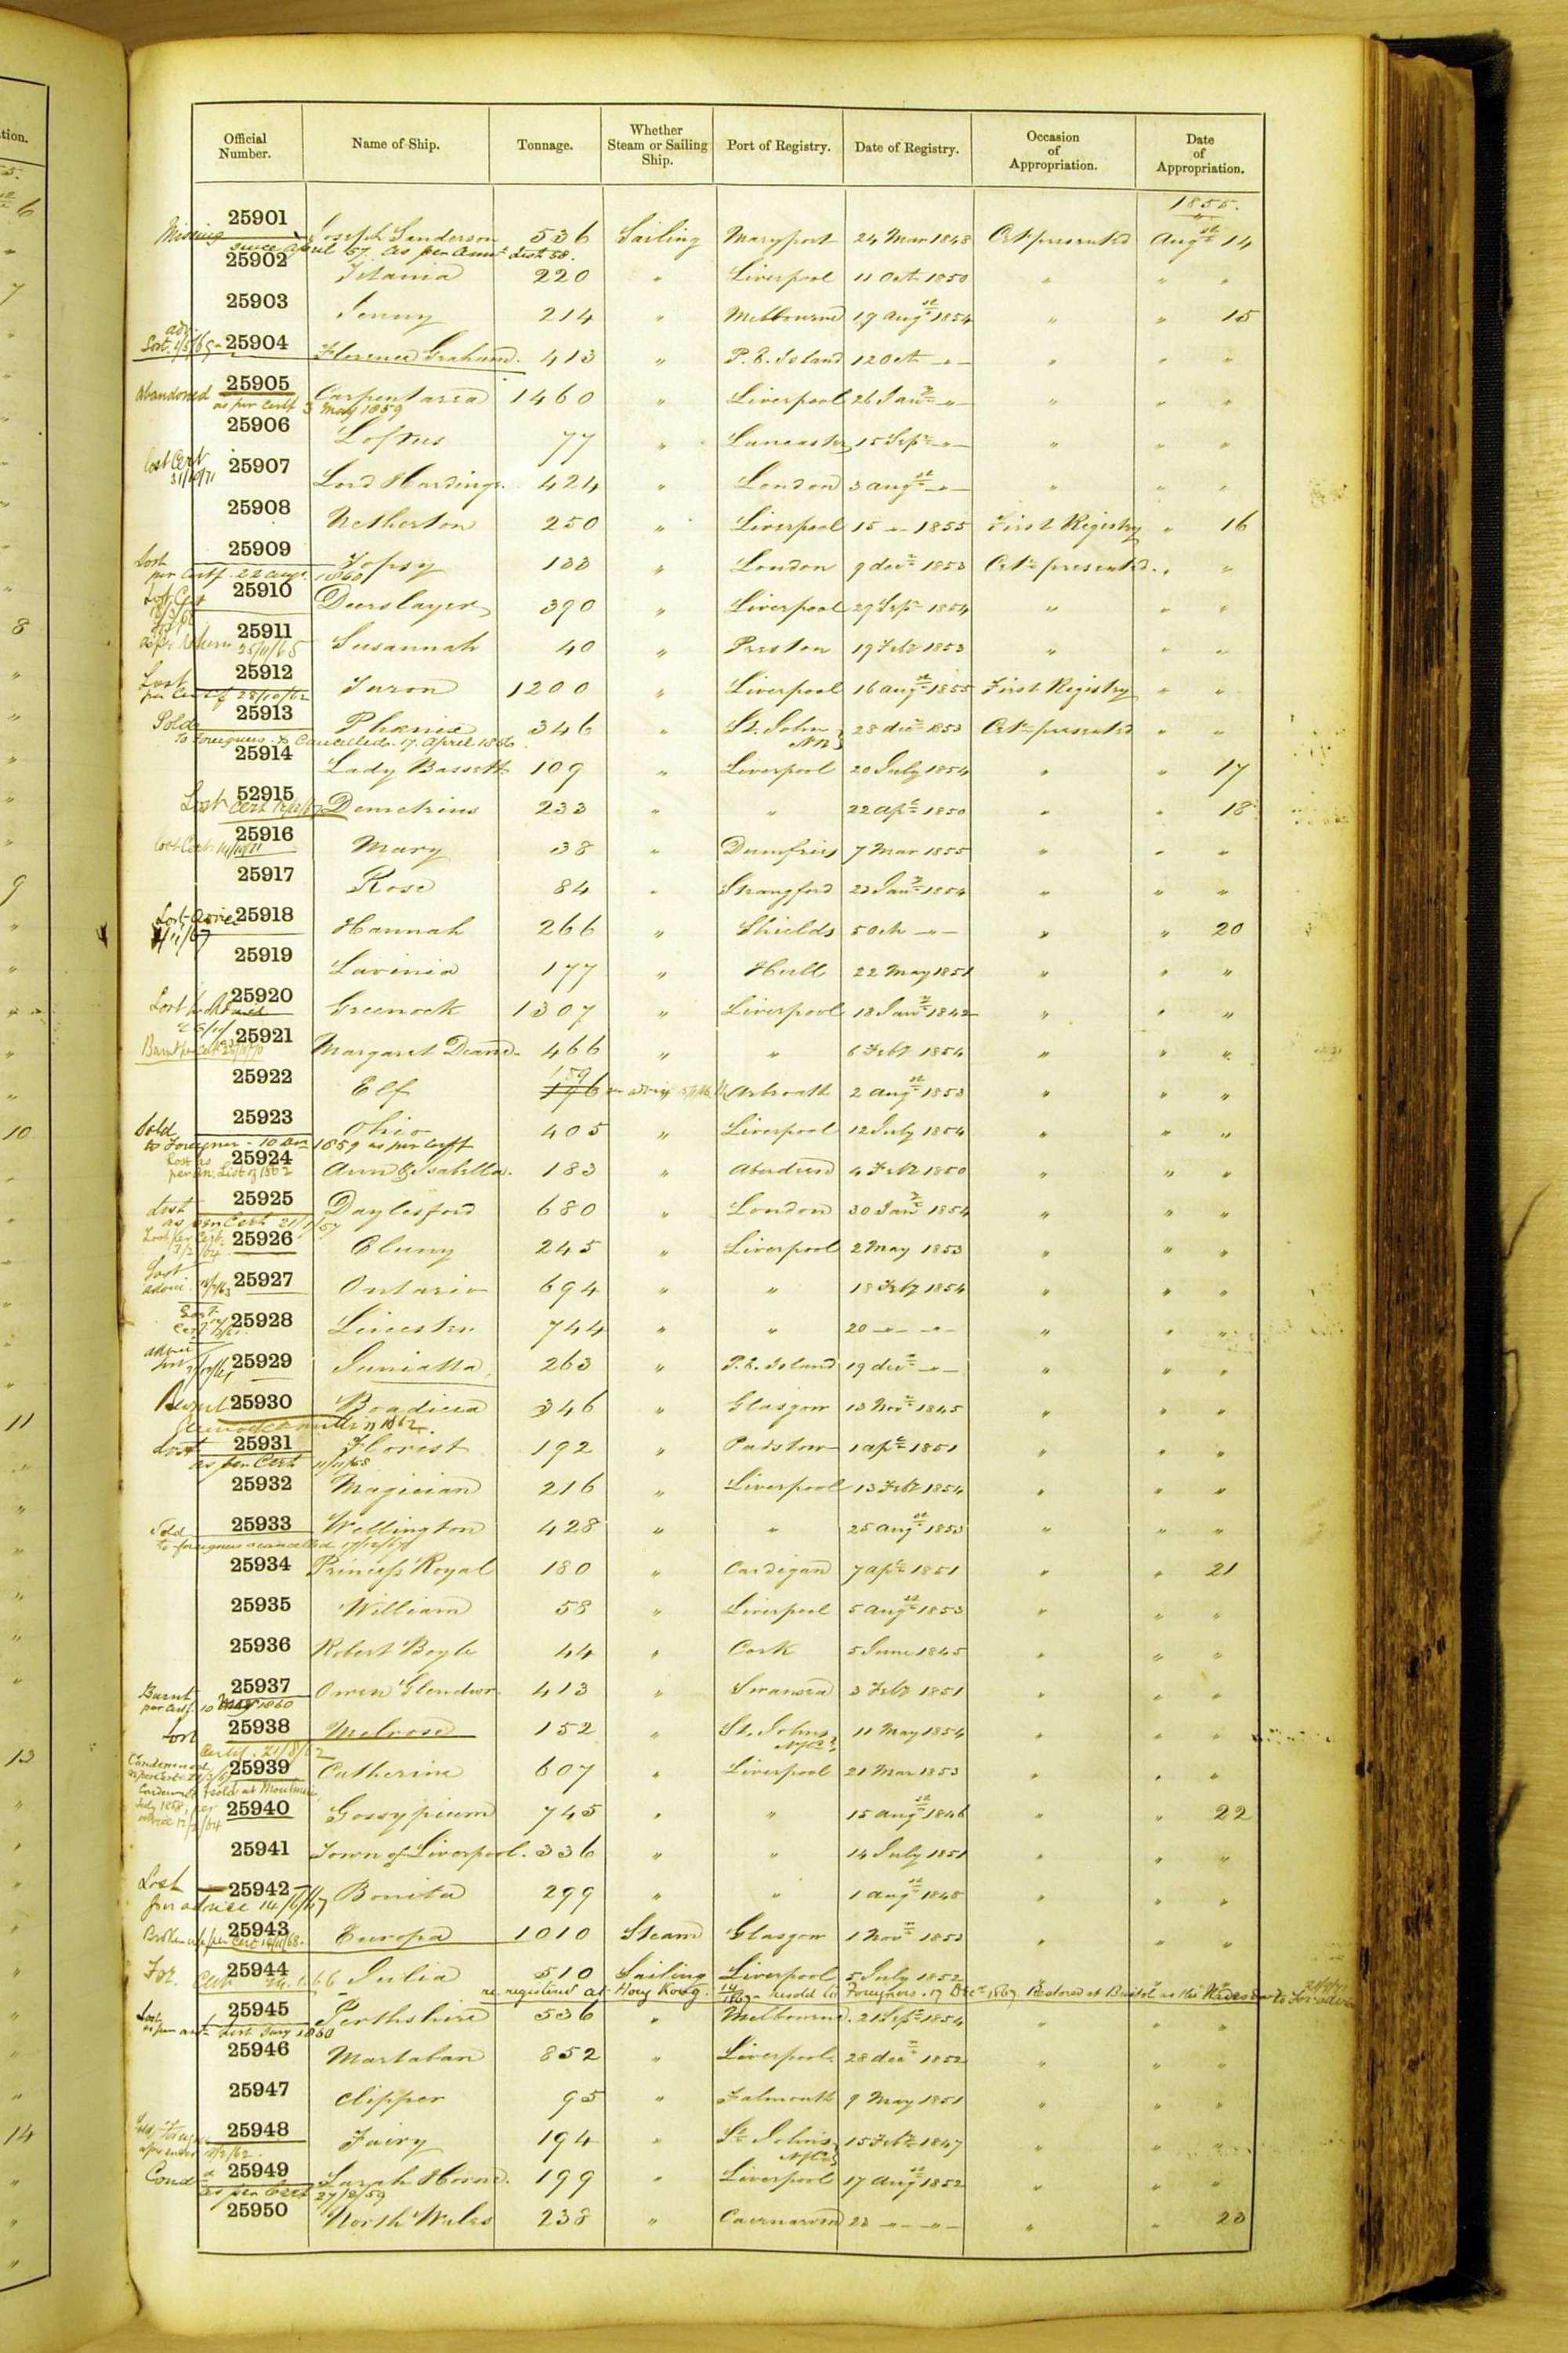 Official Number. Name of Ship. Tonnage. Whether Steam or Sailing Ship. Port of Registry. Date of Registry. Occasion of Appropriation. Date of Appropriation.
1855.
25901 Joseph Sanderson 536 Sailing Maryport 24 Mar 1848 Crt presented Augst 14
Missing since April 57 as per Annl List 58.
25902 Titania 220 " Liverpool 11 Oct 1850 " " "
25903 Jenny 214 " Melbourne 17 Augst 1854 " " 15
25904 Florence Graham 413 " P. E. Island 12 Oct -"- " " "
25905 Carpentaria 1460 " Liverpool 26 Jany -"- " " "
Abandoned as per Certf 3 May 1859
25906 Loftus 77 " Lancaster 15 Sepr -"- " " "
Lost Cert 31/10/71
25907 Lord Hardinge 424 " London 3 Augst -"- " " "
25908 Netherton 250 " Liverpool 15 -"- 1855 First Registry " 16
25909 Topsy 133 " London 9 Decr 1853 Crt presented " "
Lost per Certf. 22 Augt. 1860
25910 Deerslayer 390 " Liverpool 29 Sepr 1854 " " "
25911 Susannah 40 " Preston 19 Feby 1853 " " "
25/11/65
25912 Turon 1200 " Liverpool 16 Augst 1855 First Registry " "
Lost per Certf 28/10/62
25913 Phoenix 346 " St. John NB 28 Decr 1853 Crt presented " "
Sold to Foreigners & Cancelled. 17 April 1866
25914 Lady Bassett 109 " Liverpool 20 July 1854 " " 17
52915 Demetrius 233 " " 22 Apl 1850 " " 18
Lost Cert
25916 Mary 38 " Dumfries 7 Mar 1855 " " "
Lost Cert
25917 Rose 84 " Strangford 23 Jany 1854 " " "
25918 Hannah 266 " Shields 5 Oct -"- " " 20
Lost advice
25919 Lavinia 177 " Hull 22 May 1851 " " "
25920 Greenock 1307 " Liverpool 18 Jany 1842 " " "
25921 Margaret Deane 466 " " 6 Feby 1854 " " "
Burnt
25922 Elf 159 Arbroath 2 Augst 1853 " " "
25923 Ohio 405 " Liverpool 12 July 1854 " " "
Sold to Foreigner - 10 Decr 1859 as per Certf
25924 Ann & Isabella 183 " Aberdeen 4 Feby 1850 " " "
Lost as per An. List of 1862
25925 Daylesford 680 " London 30 Jany 1854 " " "
Lost as per Cert 21/1/57
25926 Cluny 245 " Liverpool 2 May 1853 " " "
Lost per Cert. 3/2/64
25927 Ontario 694 " " 18 Feby 1854 " " "
Lost
25928 Leicester 744 " " 20 -"- -"- " " "
25929 Juniatta 263 " P. E. Island 19 Decr -"- " " "
advice Lost
25930 Boadicea 346 " Glasgow 13 Novr 1845 " " "
Burnt
25931 Florist 192 " Padstow 1 Apl 1851 " " "
Lost as per Cert 11/11/58
25932 Magician 216 " Liverpool 13 Feby 1854 " " "
25933 Wellington 428 " " 25 Augst 1853 " " "
Sold to foreigners & cancelled
25934 Princess Royal 180 " Cardigan 7 Apl 1851 " " 21
25935 William 58 " Liverpool 5 Augst 1853 " " "
25936 Robert Boyle 44 " Cork 5 June 1845 " " "
25937 Owen Glendwr 413 " Swansea 3 Feby 1851 " " "
Burnt per Certf. 10 May 1860
25938 Melrose 152 " St. Johns Nfld 11 May 1854 " " "
Lost Certf. 21/8/62
25939 Catherine 607 " Liverpool 21 Mar 1853 " " "
Condemned
25940 Gossypium 745 " " 15 Augst 1846 " " 22
25941 Town of Liverpool 336 " " 14 July 1851 " " "
25942 Bonita 299 " " 1 Augst 1845 " " "
Lost per advice
25943 Europa 1010 Steam Glasgow 1 Novr 1853 " " "
Broken up per Cert
25944 Julia 510 Sailing Liverpool 5 July 1852
For. Cert
re-registered at Hong Kong resold to Foreigners. 17 Decr 1869 Restored at Bristol as the
25945 Perthshire 536 " Melbourne 21 Sepr 1854 " " "
Lost as per Annl List Jany 1860
25946 Martaban 852 " Liverpool 28 Decr 1852 " " "
25947 Clipper 95 " Falmouth 9 May 1851 " " "
25948 Fairy 194 " St Johns Nfld 15 Feby 1847 " " "
25949 Sarah Horne 199 " Liverpool 17 Augst 1852 " " "
Cond as per Cert 27/8/59
25950 North Wales 238 " Caernarvon 23 -"- -"- " " 23
tion.
6
7
8
9
10
11
13
14